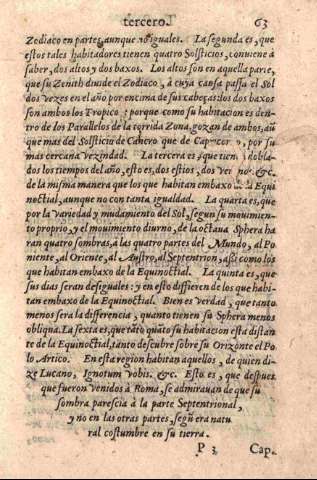 tercero. 63
Zodiaco en partes, aunque no iguales. La segunda es, que
estos tales habitadores tienen quatro Solsticios, conviene à
saber, dos altos y dos baxos. Los altos son en aquella parte,
que su Zenith divide el Zodiaco, à cuya causa passa el Sol
dos vezes en el año por encima de sus cabeças: los dos baxos
son ambos los Tropico : porque como su habitacion es den
tro de los Parallelos de la torrida Zona, gozan de ambos, aũ
que mas del Solsticio de Cancro que de Cap cor o, por su
mas cercana vezindad. La tercera es que tien dobla-
dos los tiempos del año, esto es, dos estios, dos ver nos, &c.
de la misma manera que los que habitan embaxo Equi
noctial, aunque no con tanta igualdad. La quarta es, que
por la variedad y mudamiento del Sol, segun su movimien-
to proprio, y el movimiento diurno, de la octava Sphera ha
ran quatro sombras, a las quatro partes del Mundo, al Po
niente, al Oriente, al Austro, al Septentrion, asi como los
que habitan embaxo de la Equinoctial. La quinta es, que
sus dias seran desiguales: y en esto diffieren de los que habi-
tan embaxo de la Equinoctial. Bien es verdad, que tanto
menos sera la differencia, quanto tienen su Sphera menos
obliqua. La sexta es, que tãto quãto su habitacion esta distan
te de la Equinoctial, tanto descubre sobre su Orizonte el Po
lo Artico. En esta region habitan aquellos, de quien di-
ze Lucano, Ignotum vobis. &c. Esto es, que despues
que fueron venidos à Roma, se admirauan de que su
sombra parescia à la parte Septentrional,
y no en las otras partes, segũ era natu
ral costumbre en su tierra.
P 3 Cap.